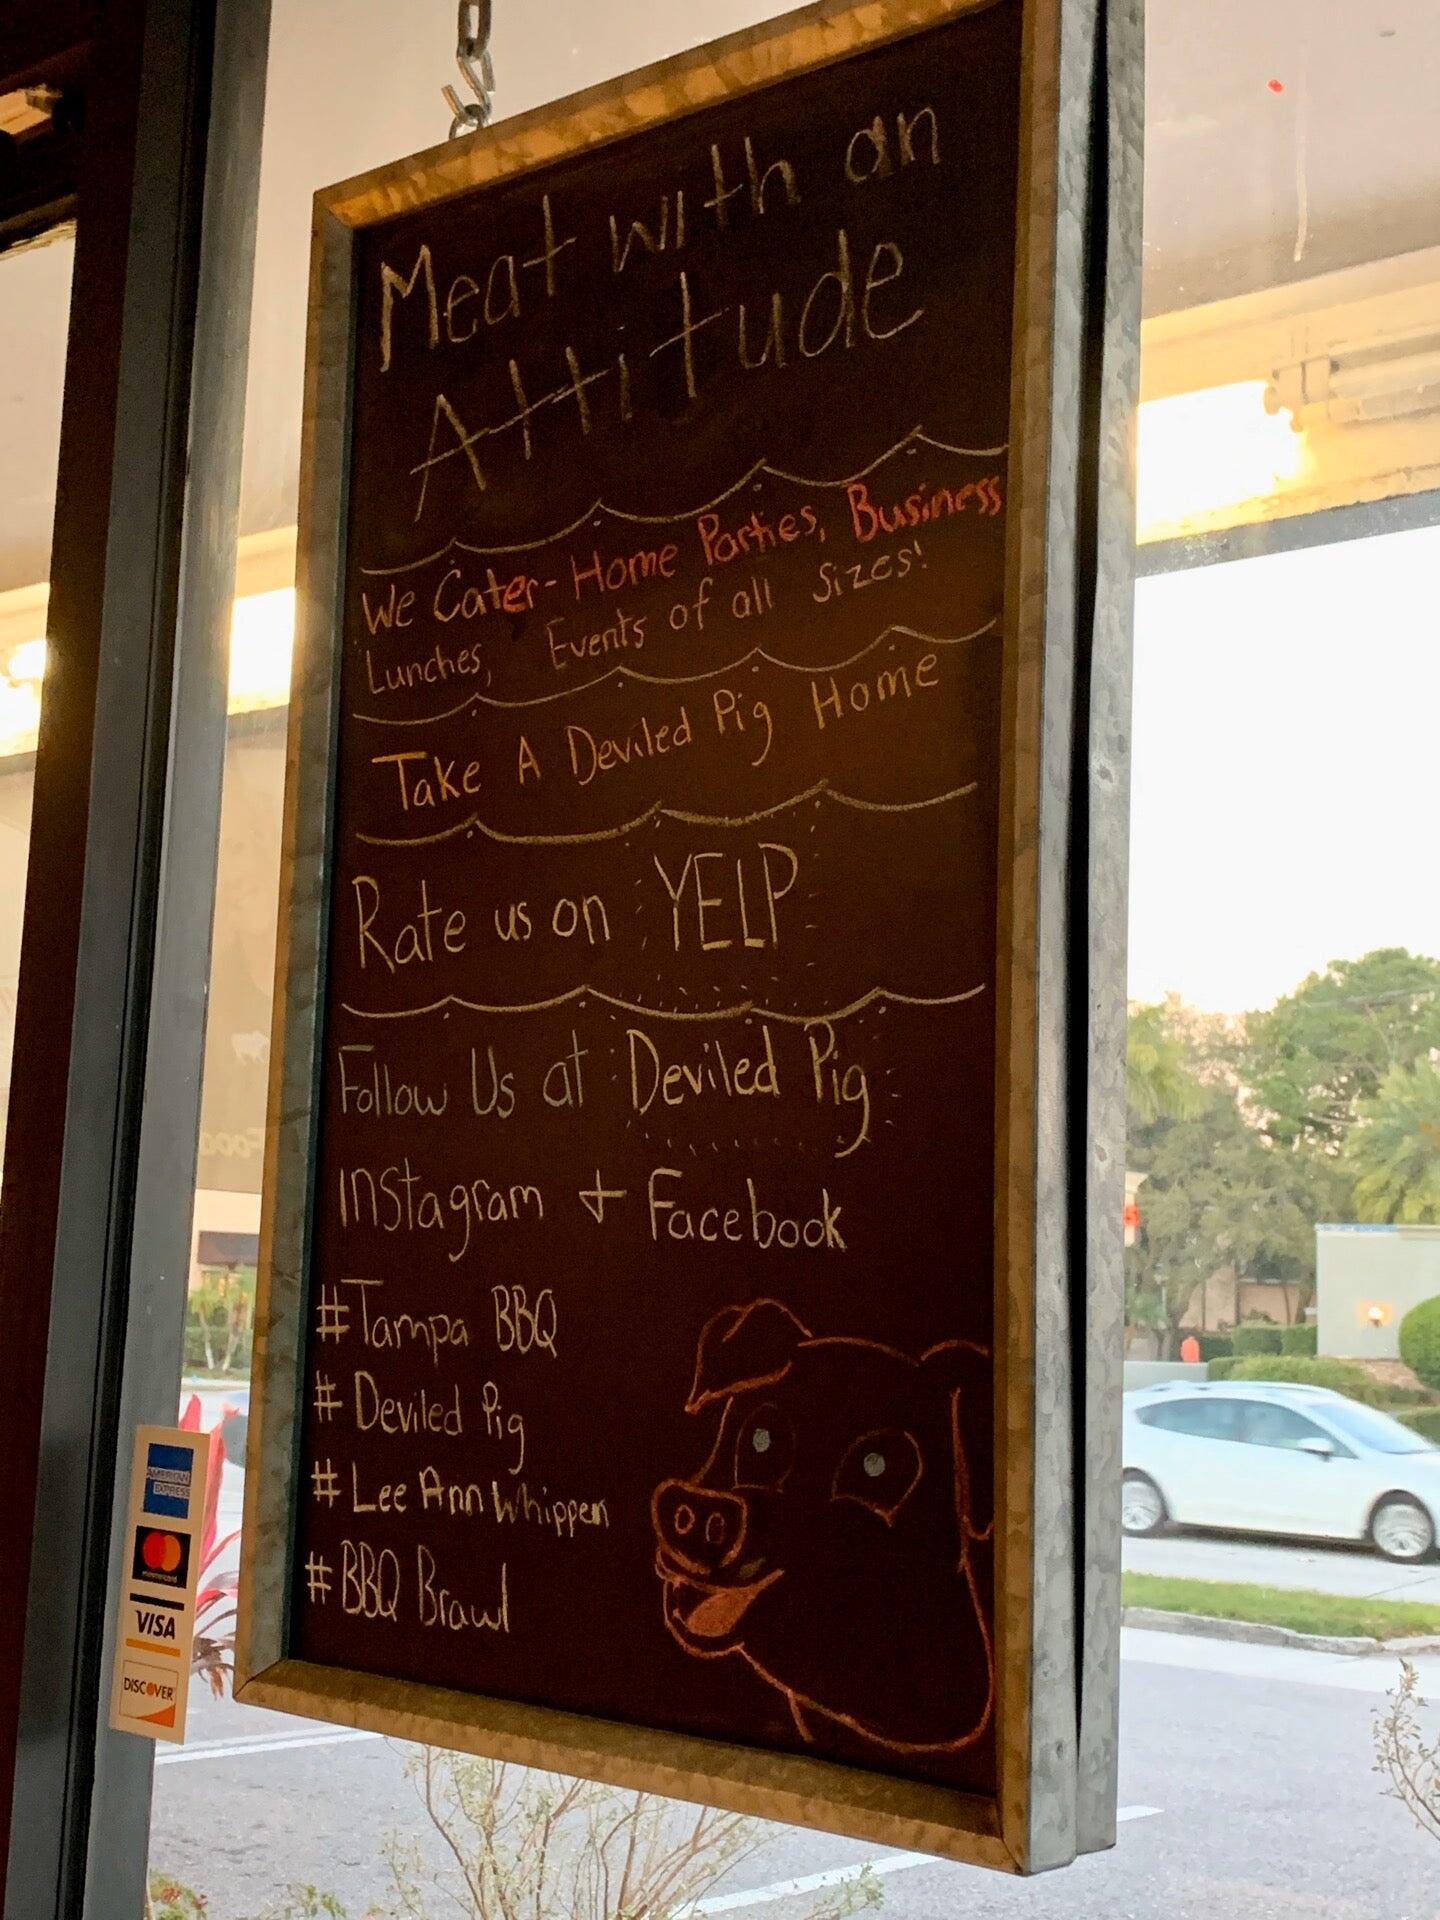 Meat with an
Attitude
We Cater - Home Parties, Business
Lunches, Events of all Sizes!
Take A Deviled Pig Home
Rate us on YELP
Follow Us at Deviled Pig
Instagram + Facebook
#Tampa BBQ
# Deviled Pig
# Lee Ann Whippen
#BBQ Brawl
AMERICAN
EXPRESS
mastercard
VISA
DISCOVER